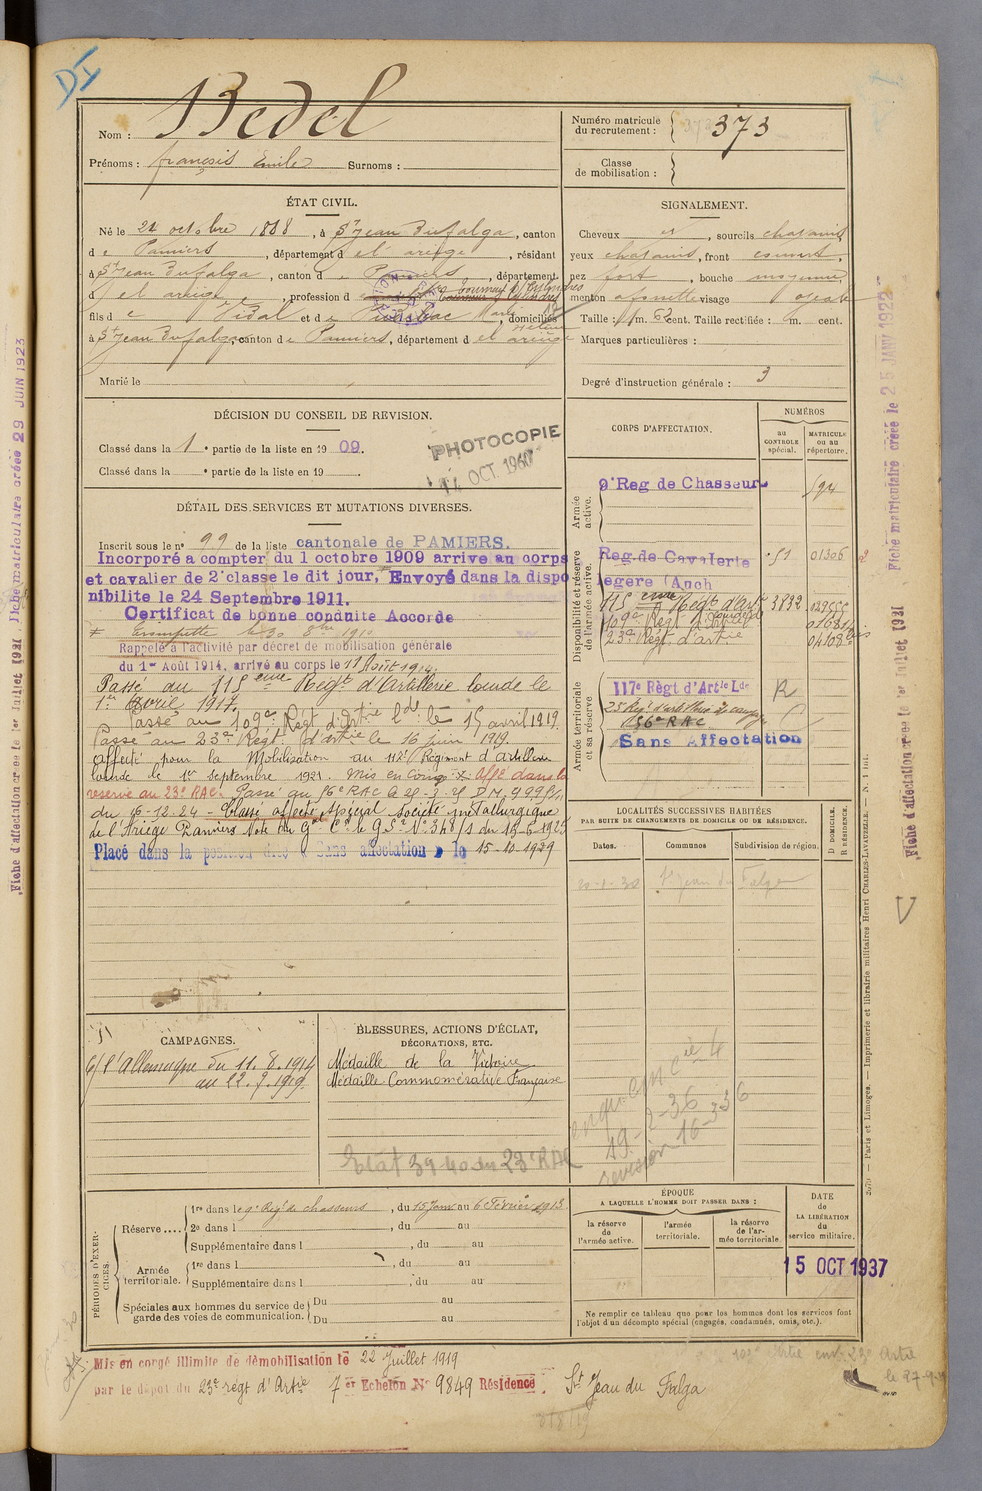 DI
Nom : Bedel
Prénoms : françois Emile Surnoms :
Numéro matricule du recrutement : 373
Classe de mobilisation :
ÉTAT CIVIL.
Né le 21 octobre 1888, à St Jean du falga, canton
d e Pamiers, département d el ariège, résidant
à St Jean du falga, canton d e Pamiers, département
d el ariège, profession d
fils d e Vidal et d e Marie, domiciliés
à St Jean du falga, canton d e Pamiers, département d el ariège
Marié le
SIGNALEMENT.
Cheveux, sourcils chatains
yeux chatains, front couvert,
nez fort, bouche moyenne
menton à fossette visage
Taille : 1 m. 62 cent. Taille rectifiée : m. cent.
Marques particulières :
Degré d'instruction générale : 3
DÉCISION DU CONSEIL DE REVISION.
Classé dans la 1e partie de la liste en 1909.
Classé dans la e partie de la liste en 19
PHOTOCOPIE
OCT. 1960
DÉTAIL DES SERVICES ET MUTATIONS DIVERSES.
Inscrit sous le n° 99 de la liste cantonale de PAMIERS.
Incorporé a compter du 1 octobre 1909 arrive au corps
et cavalier de 2e classe le dit jour, Envoyé dans la dispo
nibilite le 24 Septembre 1911.
Certificat de bonne conduite Accorde
Rappelé à l'activité par décret de mobilisation générale
du 1er Août 1914, arrivé au corps le 11 Août 1914.
Passé au 115eme Régt d'Artillerie lourde le
1er Avril 1917.
Passé au 109e Régt d'Artie Lde le 15 avril 1919.
Passé au 23e Régt d'artie le 16 juin 1919.
affecté pour la Mobilisation au 112e Régiment d'artillerie
lourde le 1er Septembre 1921. Mis en congé affé dans la
reserve au 23e RAC. Passé au 56e RAC
du 16-12-24 - Classé affecté spécial société métallurgique
de l'Ariège Pamiers Note du
Placé dans la position dite « Sans affectation » le 15-10-1929
CORPS D'AFFECTATION.
NUMÉROS
au CONTROLE spécial.
MATRICULE ou au répertoire.
Armée active.
9e Reg de Chasseurs
Disponibilité et réserve de l'armée active.
Reg. de Cavalerie 51 01306
legere (Auch
115eme Régt d'Art 3892
109e Régt
23e Régt. d'artie
Armée territoriale et sa réserve
117e Règt d'Artie Lde R
56e RAC
Sans Affectation
LOCALITÉS SUCCESSIVES HABITÉES
PAR SUITE DE CHANGEMENTS DE DOMICILE OU DE RÉSIDENCE.
Dates. Communes Subdivision de région. D DOMICILE. R RÉSIDENCE.
St Jean du Falga
CAMPAGNES.
C/ l'Allemagne du 11.8.1914
au 22.7.1919.
BLESSURES, ACTIONS D'ÉCLAT,
DÉCORATIONS, ETC.
Médaille de la Victoire
Médaille Commémorative Française
Etat 39 40 du 23e RAC
19-2-36
revision 16-3-36
PÉRIODES D'EXERCICES.
Réserve....
1re dans le 9e Régt de chasseurs, du 15 Janv au 6 Février 1913
2e dans l, du au
Supplémentaire dans l, du au
Armée territoriale.
1re dans l, du au
Supplémentaire dans l, du au
Spéciales aux hommes du service de garde des voies de communication.
Du au
Du au
ÉPOQUE
A LAQUELLE L'HOMME DOIT PASSER DANS :
la réserve de l'armée active.
l'armée territoriale.
la réserve de l'armée territoriale.
DATE de LA LIBÉRATION du service militaire.
15 OCT 1937
Ne remplir ce tableau que pour les hommes dont les services font
l'objet d'un décompte spécial (engagés, condamnés, omis, etc.).
Mis en congé illimité de démobilisation le 22 Juillet 1919
par le dépot du 23e régt d'Artie 7er Echelon No 9849 Résidence : St Jean du Falga
Fiche matriculaire créée le 25 JANV 1922
Fiche d'affectation créée le 1er Juillet 1931
Fiche d'affectation créée le 1er Juillet 1931 Fiche matriculaire créée 29 JUIN 1923
Paris et Limoges. — Imprimerie et librairie militaires Henri CHARLES-LAVAUZELLE.